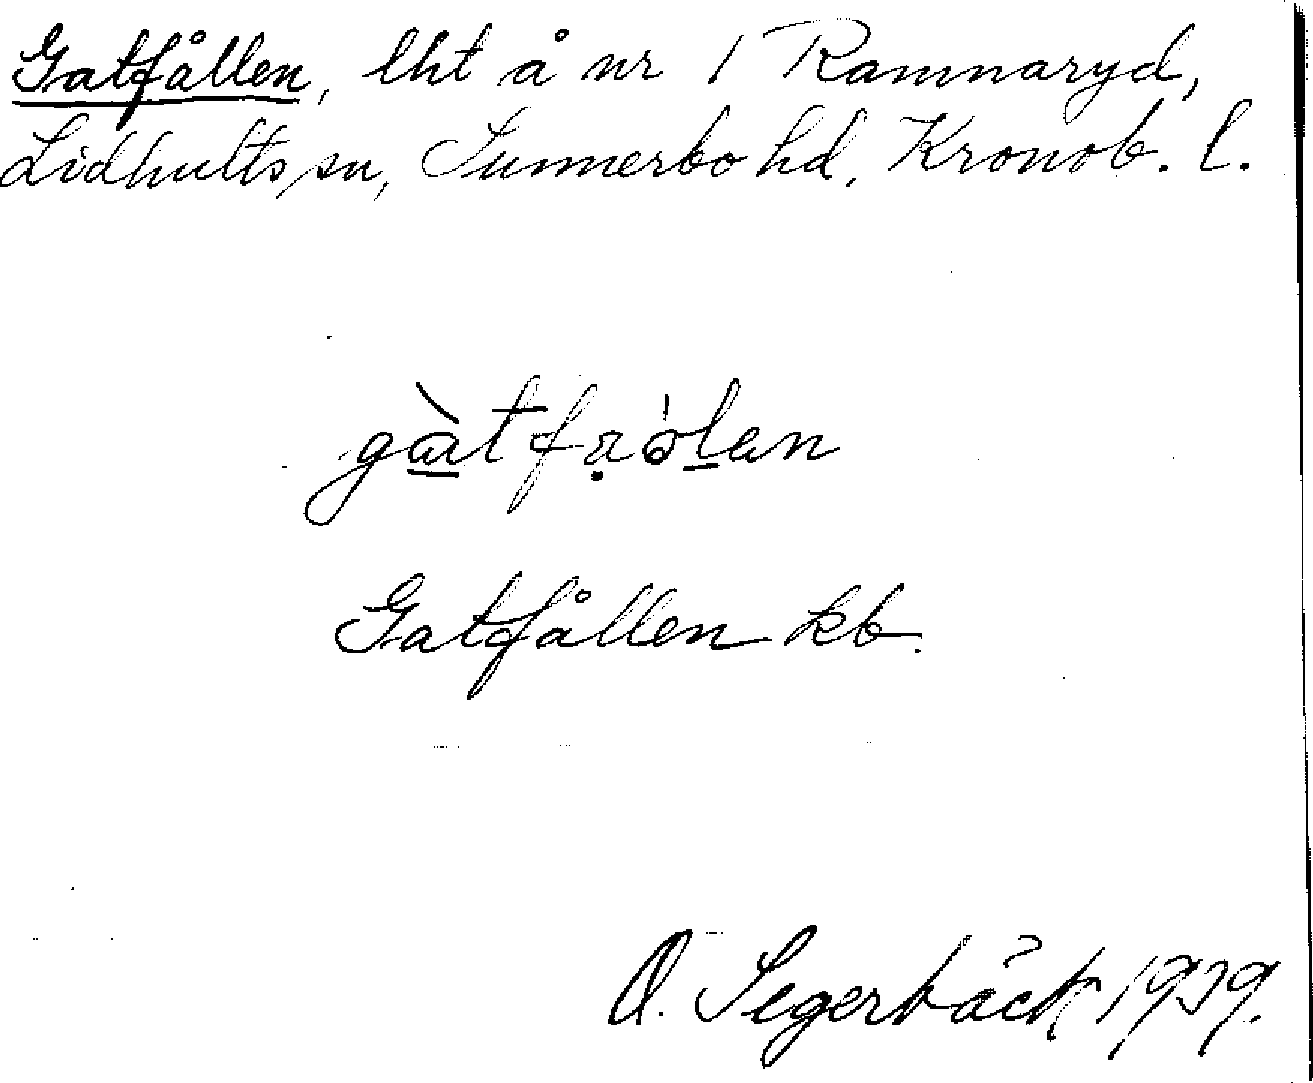 Gatfållen, lht å nr 1 Ramnaryd,
Lidhults sn, Sunnerbo hd, Kronob. l.
Gatfållen kb.
O. Segerbäck 1939.